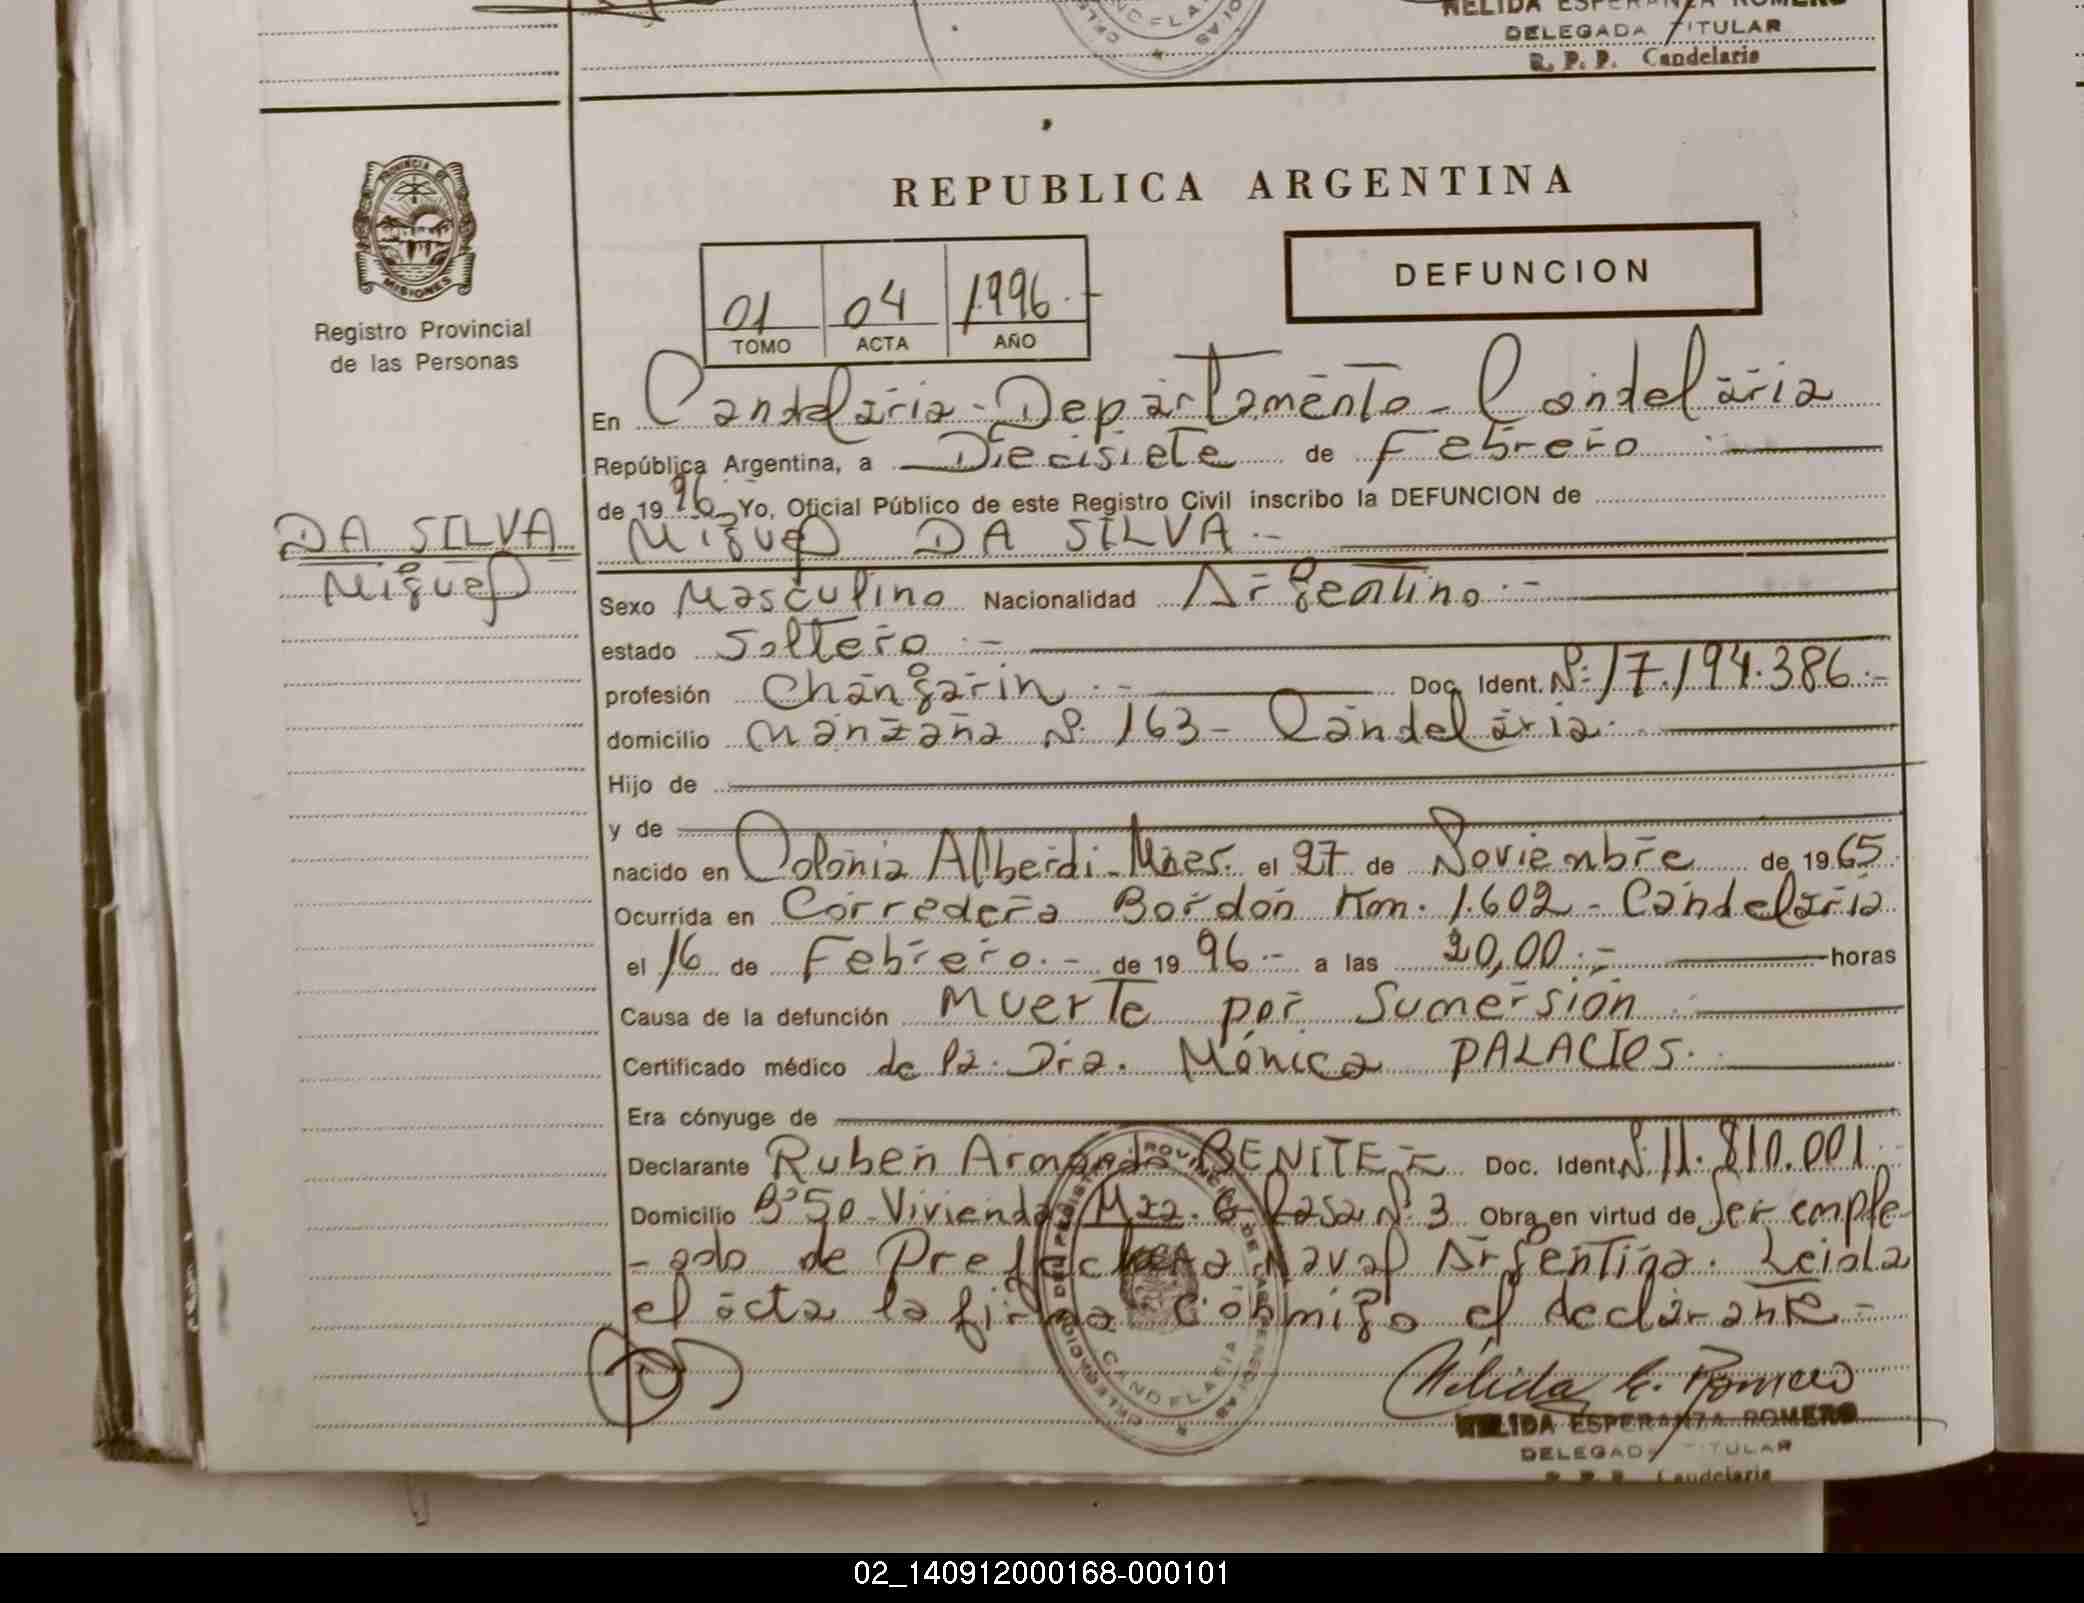 NELIDA ESPERANZA ROMERO
DELEGADA TITULAR
R. P. P. Candelaria
PROVINCIA DE
MISIONES
Registro Provincial
de las Personas
DA SILVA
Miguel
REPUBLICA ARGENTINA
01 04 1996.-
TOMO ACTA AÑO
DEFUNCION
En Candelaria - Departamento - Candelaria
República Argentina, a Diecisiete de Febrero .-
de 1996 Yo, Oficial Público de este Registro Civil inscribo la DEFUNCION de
Miguel DA SILVA .-
Sexo Masculino Nacionalidad Argentino .-
estado Soltero .-
profesión Changarin .- Doc. Ident. Nº 17.194.386.-
domicilio Manzana Nº 163 - Candelaria.
Hijo de
y de
nacido en Colonia Alberdi - Mnes. el 27 de Noviembre de 1965
Ocurrida en Corredera Bordón Km. 1.602 - Candelaria
el 16 de Febrero .- de 1996 .- a las 20,00 .- horas
Causa de la defunción Muerte por Sumersión
Certificado médico de la Dra. Mónica PALACIOS.
Era cónyuge de
Declarante Ruben Armando BENITEZ Doc. Ident. Nº 11.810.001
Domicilio Bº 50 Vivienda Mza. G Casa Nº 3 Obra en virtud de Ser emple-
- ado de Prefectura Naval Argentina. Leida
el acta la firma conmigo el declarante =
CANDELARIA
Nélida E. Romero
NELIDA ESPERANZA ROMERO
DELEGADA TITULAR
R. P. P. Candelaria
02_140912000168-000101